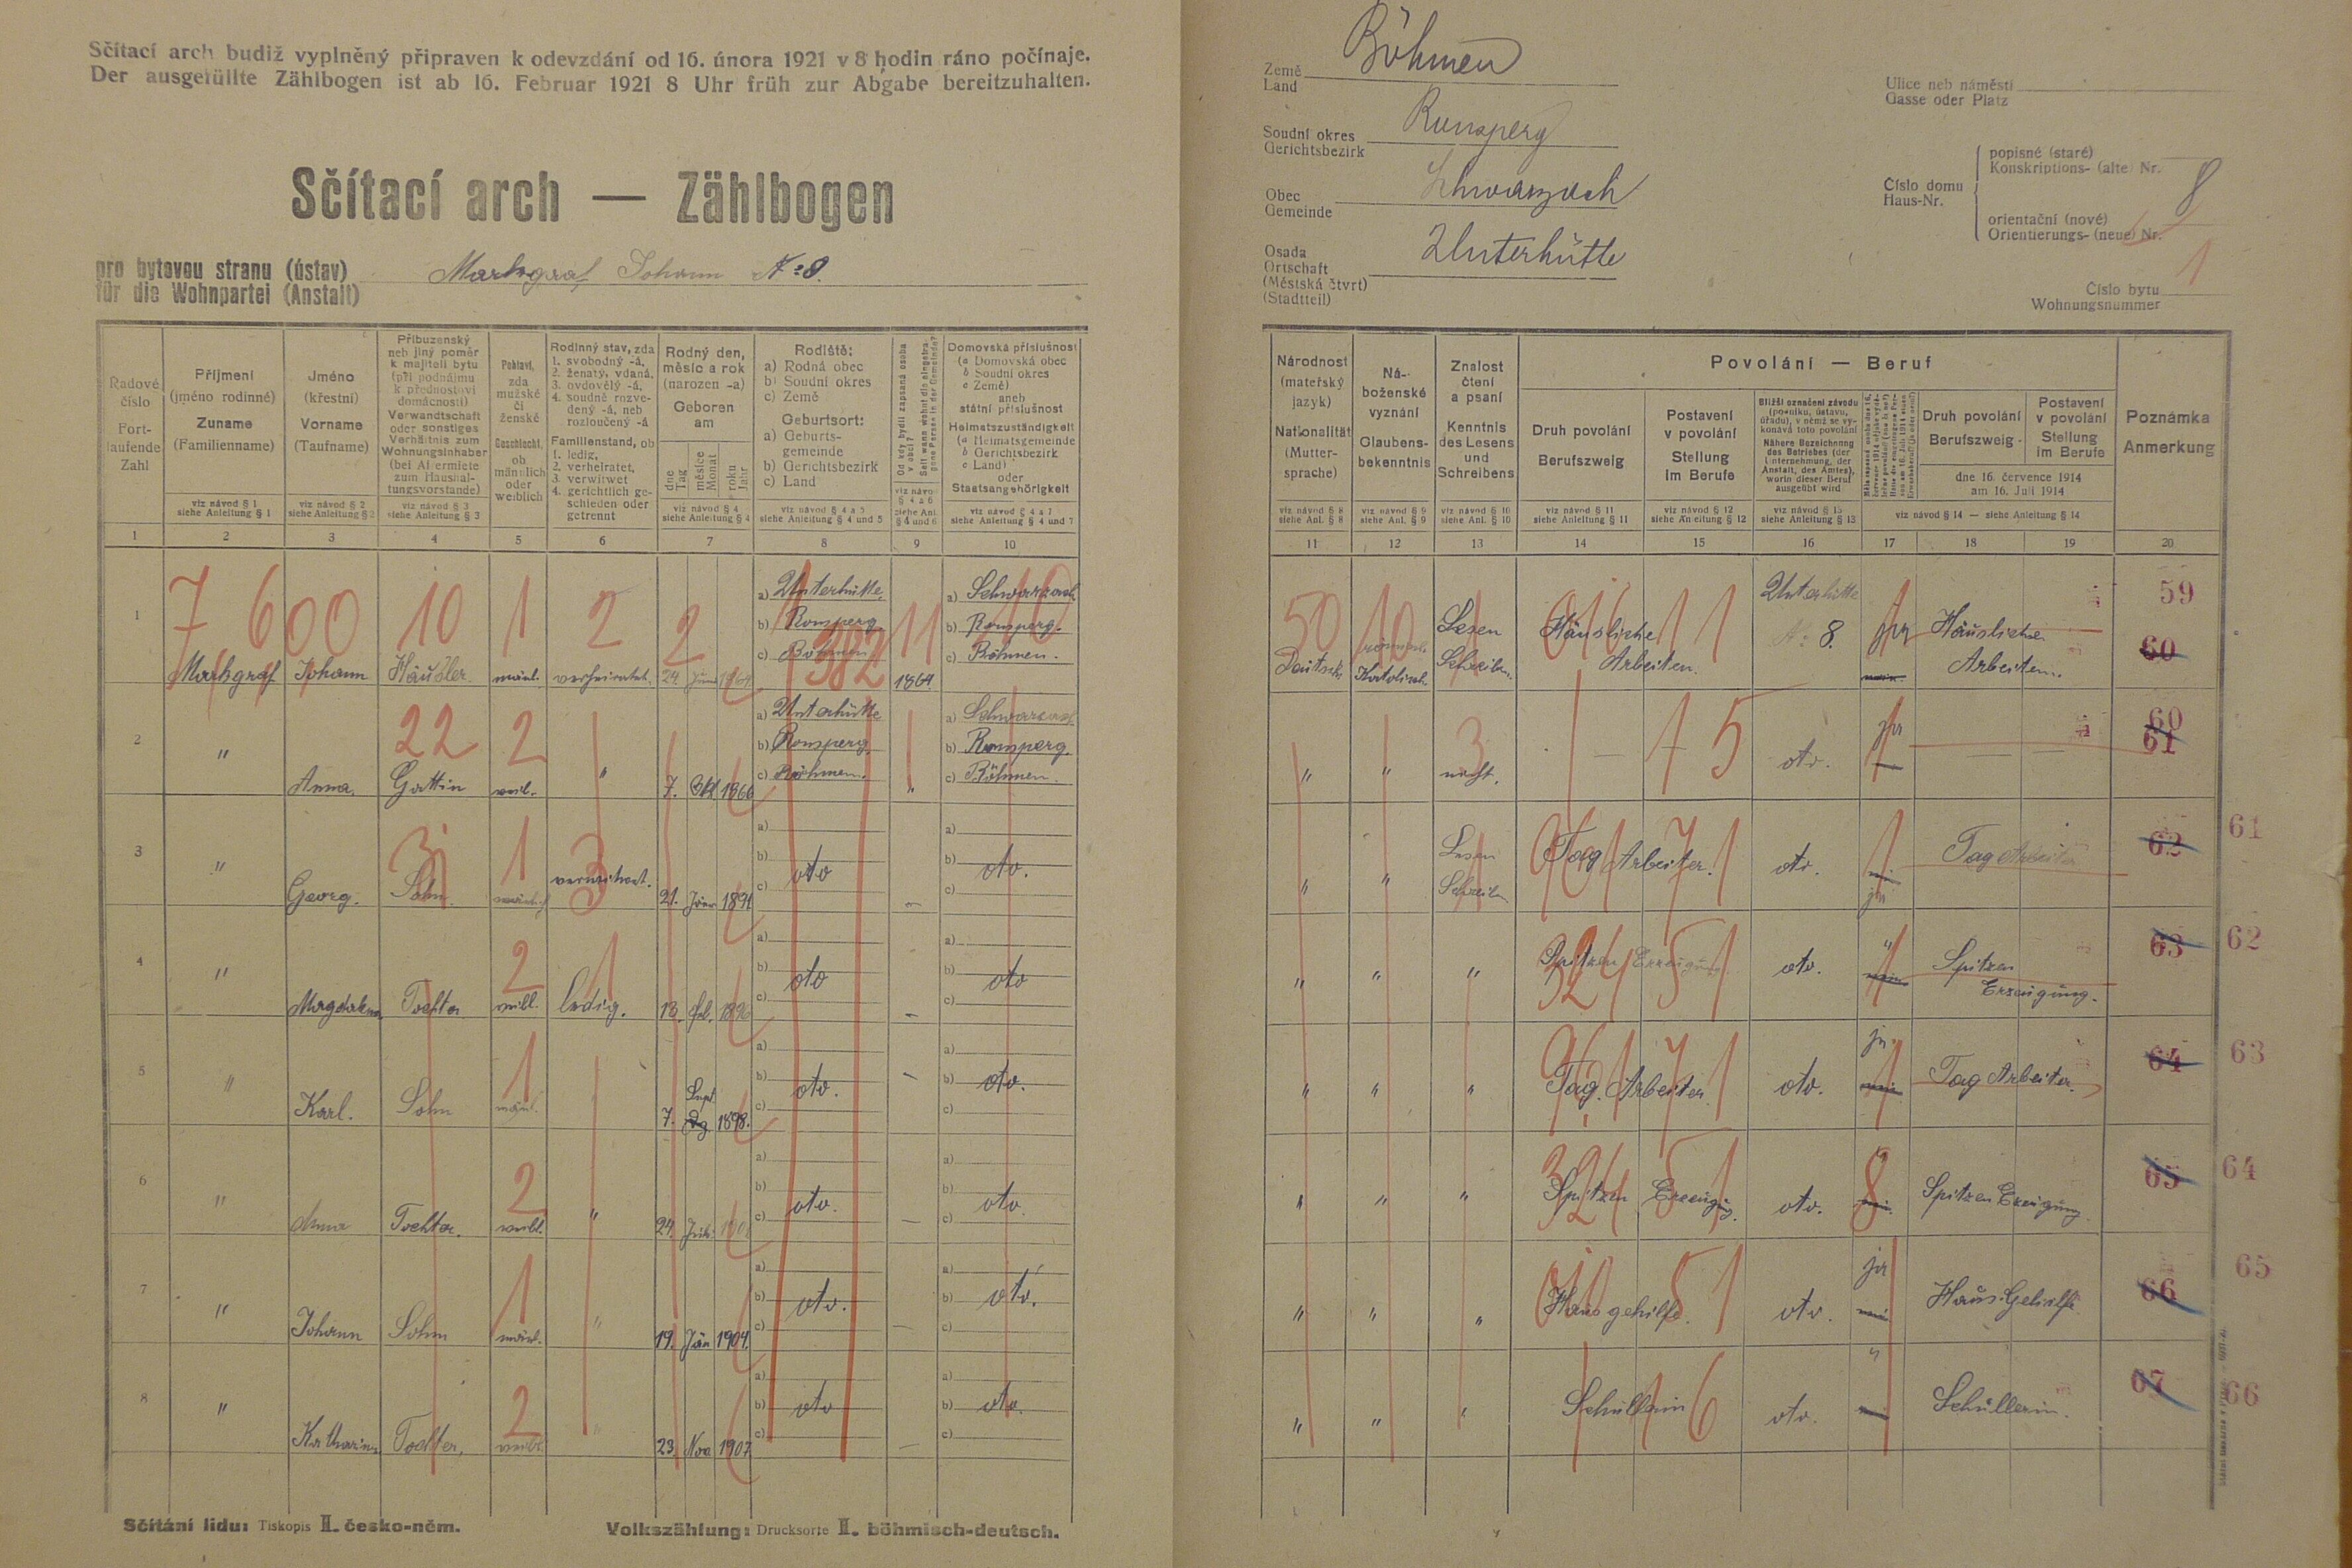 Sčítací arch budiž vyplněný připraven k odevzdání od 16. února 1921 v 8 hodin ráno počínaje.
Der ausgefüllte Zählbogen ist ab 16. Februar 1921 8 Uhr früh zur Abgabe bereitzuhalten.
Sčítací arch — Zählbogen
pro bytovou stranu (ústav)
für die Wohnpartei (Anstalt)
Markgraf Johann № 8.
Řadové číslo
Fortlaufende Zahl
1
Příjmení
(jméno rodinné)
Zuname
(Familienname)
viz návod § 1
siehe Anleitung § 1
2
Jméno
(křestní)
Vorname
(Taufname)
viz návod § 2
siehe Anleitung § 2
3
Příbuzenský
neb jiný poměr
k majiteli bytu
(při podnájmu
k přednostovi
domácnosti)
Verwandtschaft
oder sonstiges
Verhältnis zum
Wohnungsinhaber
(bei Aftermiete
zum Haushal-
tungsvorstande)
viz návod § 3
siehe Anleitung § 3
4
Pohlaví,
zda
mužské
či
ženské
Geschlecht,
ob
männlich
oder
weiblich
5
Rodinný stav, zda
1. svobodný -á,
2. ženatý, vdaná,
3. ovdovělý -á,
4. soudně rozve-
dený -á, neb
rozloučený -á
Familienstand, ob
1. ledig,
2. verheiratet,
3. verwitwet
4. gerichtlich ge-
schieden oder
getrennt
6
Rodný den,
měsíc a rok
(narozen -a)
Geboren
am
dne
Tag
měsíce
Monat
roku
Jahr
viz návod § 4
siehe Anleitung § 4
7
Rodiště:
a) Rodná obec
b) Soudní okres
c) Země
Geburtsort:
a) Geburts-
gemeinde
b) Gerichtsbezirk
c) Land
viz návod § 4 a 5
siehe Anleitung § 4 und 5
8
Od kdy bydlí zapsaná osoba
v obci?
Seit wann wohnt die eingetra-
gene Person in der Gemeinde?
viz návod
§ 4 a 6
siehe Anl.
§ 4 und 6
9
Domovská příslušnost
(a Domovská obec
b Soudní okres
c Země)
aneb
státní příslušnost
Heimatszuständigkeit
(a Heimatsgemeinde
b Gerichtsbezirk
c Land)
oder
Staatsangehörigkeit
viz návod § 4 a 7
siehe Anleitung § 4 und 7
10
7 600 10 1 2 2 382 11 10
1
Markgraf Johann Häusler männl. verheiratet. 24. Juni 1864
a) Unterhütte
b) Ronsperg
c) Böhmen
1864
a) Schwarzach
b) Ronsperg.
c) Böhmen.
22 2
2
" Anna. Gattin weibl. " 7. Okt 1866
a) Unterhütte
b) Ronsperg
c) Böhmen.
"
a) Schwarzach
b) Ronsperg.
c) Böhmen.
3 1 3
3
" Georg. Sohn. männl. verwitwet. 21. Jän 1891
a)
b) oto
c)
–
a)
b) oto.
c)
2 1
4
" Magdalena Tochter weibl. ledig. 13. Feb. 1896
a)
b) oto
c)
–
a)
b) oto
c)
1
5
" Karl. Sohn männl. " 7. Sept 1898.
a)
b) oto.
c)
–
a)
b) oto.
c)
2
6
" Anna Tochter. weibl. " 24.
a)
b) oto.
c)
–
a)
b) oto.
c)
1
7
" Johann Sohn männl. " 19. Jän 1904.
a)
b) oto.
c)
–
a)
b) oto.
c)
2
8
" Katharina Tochter. weibl. " 23. Nov 1907
a)
b) oto
c)
–
a)
b) oto.
c)
Sčítání lidu: Tiskopis II. česko-něm.
Volkszählung: Drucksorte II. böhmisch-deutsch.
Země
Land
Böhmen
Soudní okres
Gerichtsbezirk
Ronsperg
Obec
Gemeinde
Schwarzach
Osada
Ortschaft
(Městská čtvrť)
(Stadtteil)
Unterhütte
Ulice neb náměstí
Gasse oder Platz
Číslo domu
Haus-Nr.
popisné (staré)
Konskriptions- (alte) Nr.
8
orientační (nové)
Orientierungs- (neue) Nr.
Číslo bytu
Wohnungsnummer
1
Národnost
(mateřský
jazyk)
Nationalität
(Mutter-
sprache)
viz návod § 8
siehe Anl. § 8
11
Ná-
boženské
vyznání
Glaubens-
bekenntnis
viz návod § 9
siehe Anl. § 9
12
Znalost
čtení
a psaní
Kenntnis
des Lesens
und
Schreibens
viz návod § 10
siehe Anl. § 10
13
Povolání — Beruf
Druh povolání
Berufszweig
viz návod § 11
siehe Anleitung § 11
14
Postavení
v povolání
Stellung
im Berufe
viz návod § 12
siehe Anleitung § 12
15
Bližší označení závodu
(podniku, ústavu,
úřadu), v němž se vy-
konává toto povolání
Nähere Bezeichnung
des Betriebes (der
Unternehmung, der
Anstalt, des Amtes),
worin dieser Beruf
ausgeübt wird
viz návod § 13
siehe Anleitung § 13
16
17
Druh povolání
Berufszweig
Postavení
v povolání
Stellung
im Berufe
dne 16. července 1914
am 16. Juli 1914
viz návod § 14 — siehe Anleitung § 14
18
19
Poznámka
Anmerkung
20
50 10
Deutsch Katolisch Lesen
Schreiben.
Häusliche
Arbeiten.
1 1
Unterhütte
№ 8.
ja
Häusliche
Arbeiten.
59
60
" " nicht. – 5 oto. ja –
60
61
" " Lesen
Schreiben
Tag Arbeiter. 7 1 oto. ja Tag Arbeiter
62 61
" " " Spitzen Erzeugung 324 5 1 oto. " Spitzen
Erzeugung.
63 62
" " " Tag. Arbeiter 7 1 oto. ja. Tag Arbeiter.
64 63
" " " Spitzen Erzeugung. 324 5 1 oto. 8 Spitzen Erzeugung
65 64
" " " Hausgehilfe. 5 1 oto. ja Haus Gehilfe
66 65
" " " Schüllerin 6 oto. " Schüllerin.
67 66